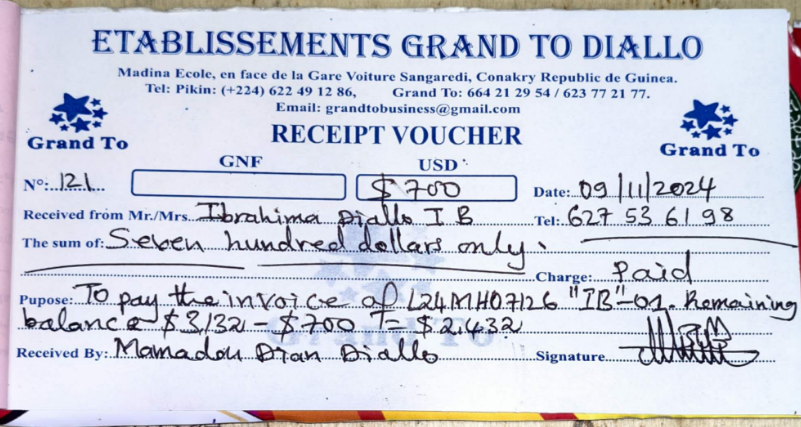 ETABLISSEMENTS GRAND TO DIALLO
Madina Ecole, en face de la Gare Voiture Sangaredi, Conakry Republic de Guinea.
Tel: Pikin: (+224) 622 49 12 86, Grand To: 664 21 29 54 / 623 77 21 77.
Email: grandtobusiness@gmail.com
Grand To
RECEIPT VOUCHER
Grand To
GNF USD
Nº: 121 $ 700 Date: 09/11/2024
Received from Mr./Mrs. Ibrahima Diallo I B Tel: 627 53 61 98
The sum of: Seven hundred dollars only.
Charge: Paid
Pupose: To pay the invoice of L24MH07126 "IB"-01. Remaining
balance $3,132 - $700 = $2,432
Grand To
Received By: Mamadou Dian Diallo Signature